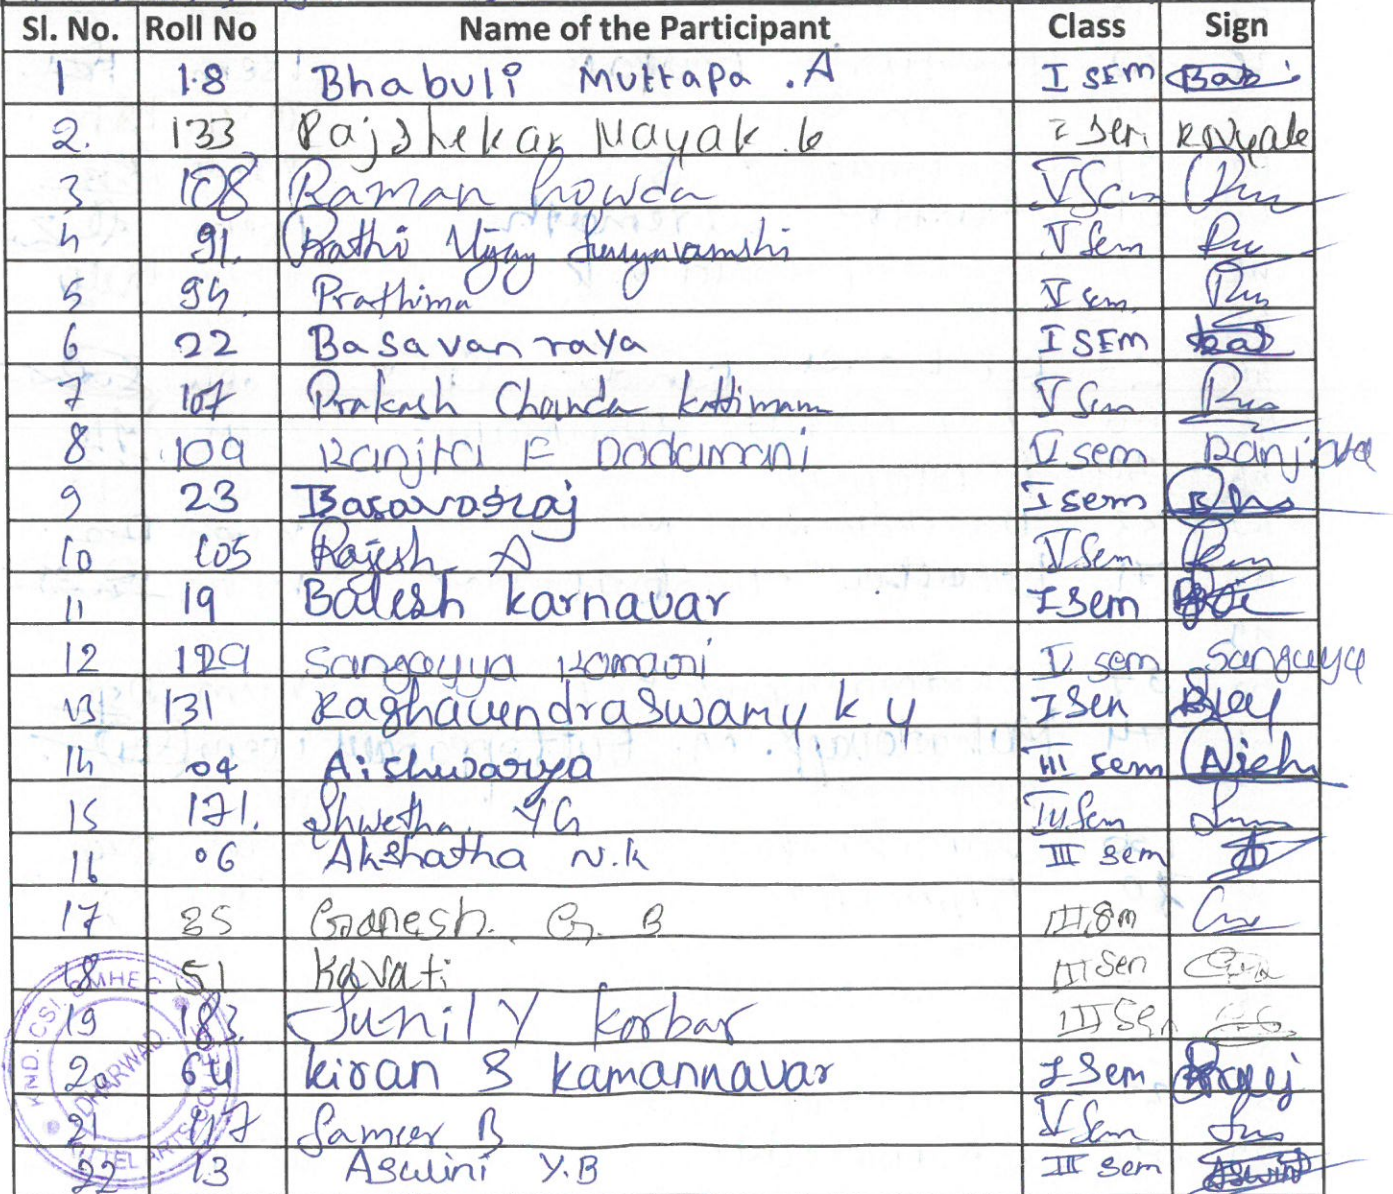 Sl. No. Roll No Name of the Participant Class Sign
1 18 Bhabuli Muttapa .A I SEM Bab
2. 133 Rajshekar Nayak .k I Sem
3 108 Raman Gowda V Sem
4 91. Prathi Vijay Suryavamshi V Sem
5 94 Prathima V Sem
6 22 Basavanraya I SEM Bas
7 107 Prakash Chanda Kattimani V Sem
8 109 Ranjita F Dodamani V sem Ranjita
9 23 Basavaraj I sem
10 105 Rajesh A V Sem
11 19 Balesh Karnavar I Sem
12 129 Sangayya V sem Sangayya
13 131 Raghavendraswamy k y I Sem
14 04 Aishwarya III sem Aish
15 171. Shwetha YG Sem
16 06 Akshatha N.k III sem
17 35 Ganesh. G. B III Sem
18 51 Kavati III Sem
19 183. Sunil Y Korbar III Sem
20 64 kiran S kamannavar I Sem
21 117 Sameer B V Sem
22 13 Aswini Y.B III sem Aswini
KND. CSI. SMHEC
DHARWAD.
KITTEL ARTS COLLEGE